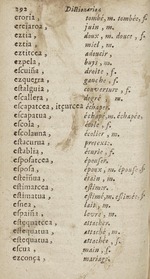 292 Dictionarioa
eroria, tombé, m. tombée, f.
ereiaroa, juin, m.
eztia, doux, m. douce, f.
eztia, miel, m.
eztitcea, adoucir.
ezpela, buys, m.
escuina, droite, f.
ezquerra, gauche, f.
estalguia, couverture, f.
escallera, degré, m.
escapatcea, itçurcea, échaper.
escapatua, échapé, m. échapée, f.
escola, école, f.
escolauna, écolier, m.
estacurua, pretexte.
establia, écurie, f.
esposatcea, épouser.
esposa, époux, m. épouse, f.
esteinua, étain, m.
estimatcea, estimer.
estimatua, estimé, m. estimée, f.
esnea, lait, m.
espaina, levre, f.
estequatcea, attacher.
estequatua, attaché, m.
estequatua, attachée, f.
escua, main, f.
ezconça, mariage.